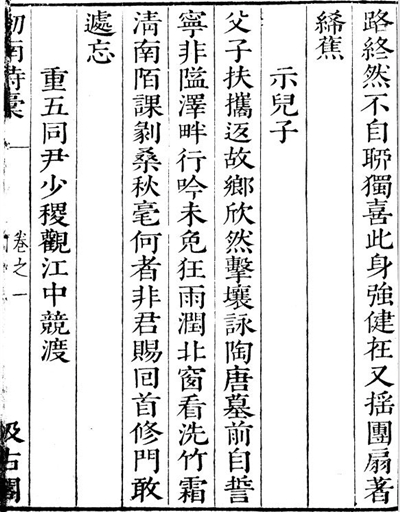 路終然不自聊獨喜此身強健在又揺團扇著
絺蕉
示兒子
父子扶攜返故鄉欣然擊壤詠陶唐墓前自誓
寧非隘澤畔行吟未免狂雨潤北窗看洗竹霜
清南陌課剝桑秋毫何者非君賜回首修門敢
遽忘
重五同尹少稷觀江中競渡
南詩稾 卷之一 汲古閣